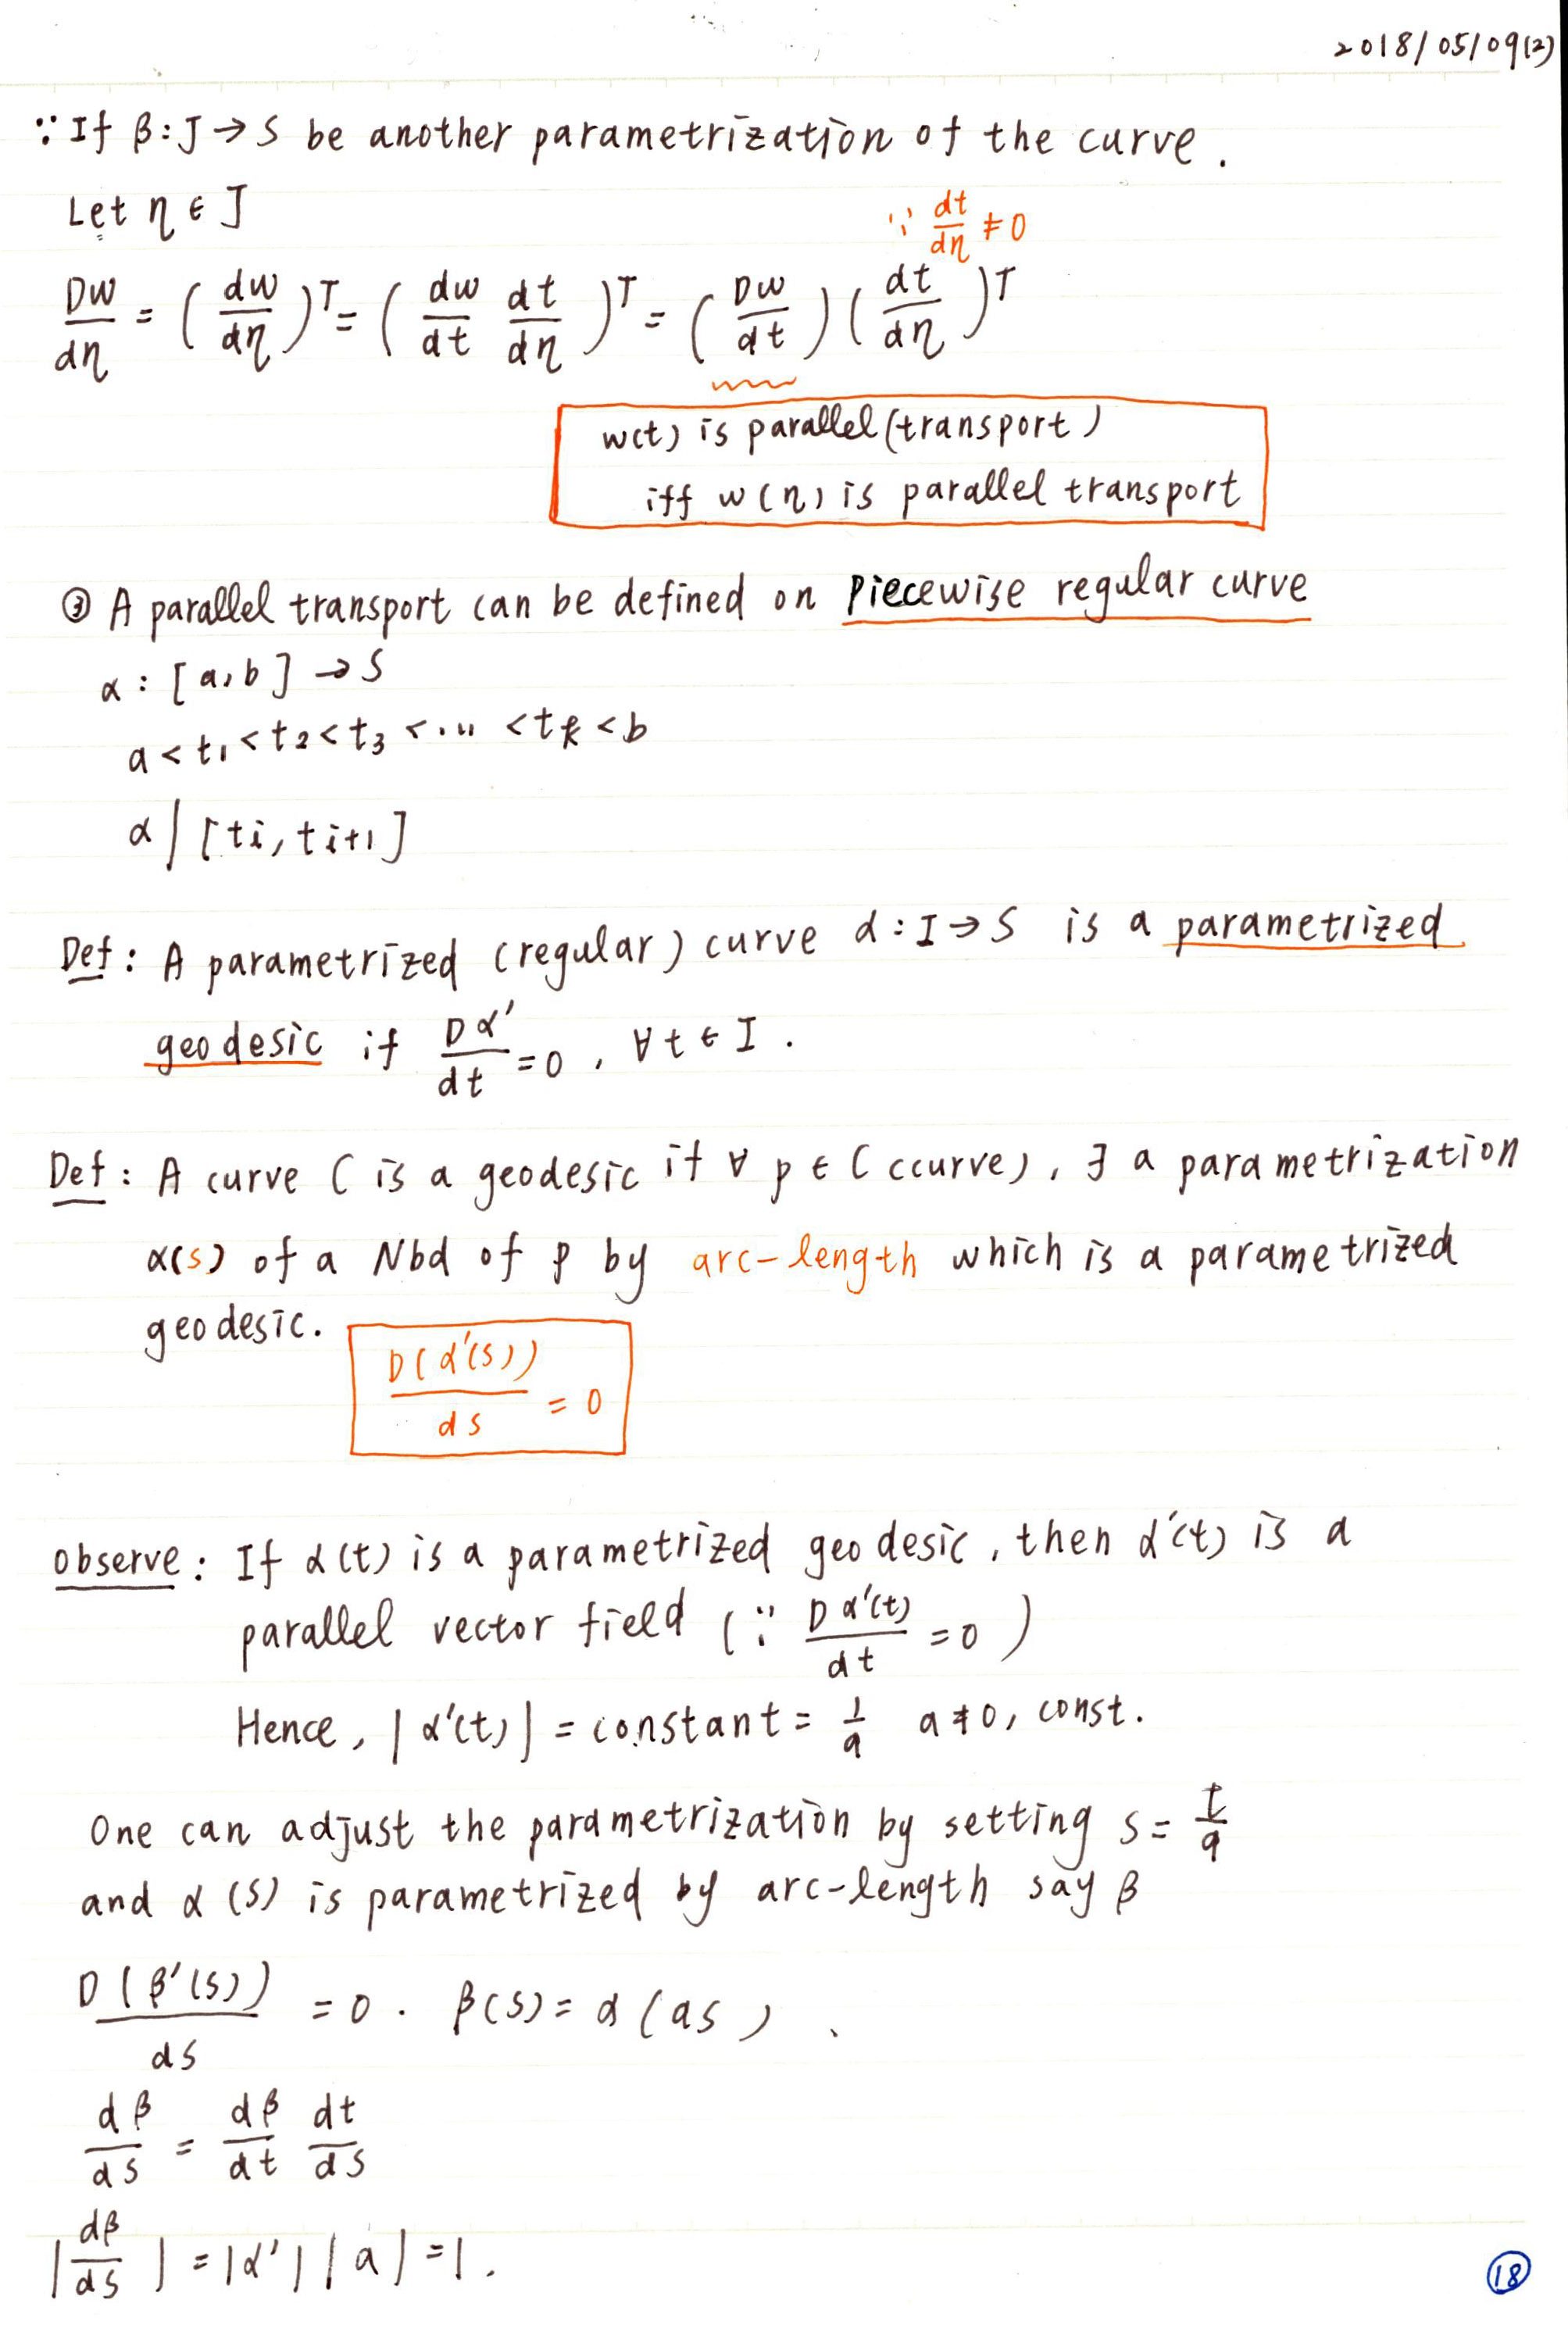 2018/05/09(2)
∵ If β: J → S be another parametrization of the curve.
Let η ∈ J
∵ dt/dη ≠ 0
Dw/dη = (dw/dη)^T = (dw/dt dt/dη)^T = (Dw/dt)(dt/dη)^T
w(t) is parallel (transport)
iff w(η) is parallel transport
③ A parallel transport can be defined on Piecewise regular curve
α : [a,b] → S
a < t₁ < t₂ < t₃ < ... < t_k < b
α | [ti, ti+1]
Def : A parametrized (regular) curve α : I → S is a parametrized
geodesic if Dα'/dt = 0, ∀ t ∈ I.
Def : A curve C is a geodesic if ∀ p ∈ C (curve), ∃ a parametrization
α(s) of a Nbd of p by arc-length which is a parametrized
geodesic.
D(α'(s))/ds = 0
observe : If α(t) is a parametrized geodesic, then α'(t) is a
parallel vector field (∵ Dα'(t)/dt = 0)
Hence, |α'(t)| = constant = 1/a a ≠ 0, const.
One can adjust the parametrization by setting s = t/a
and α(s) is parametrized by arc-length say β
D(β'(s))/ds = 0 . β(s) = α(as).
dβ/ds = dβ/dt dt/ds
|dβ/ds| = |α'| |a| = 1.
⑱